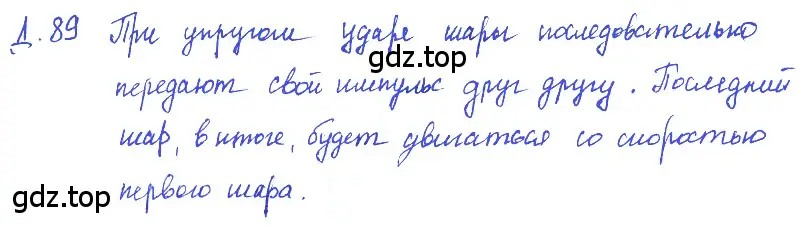 Д. 89 При упругом ударе шары последовательно
gdz.top
передают свой импульс друг другу. Последний
шар, в итоге, будет двигаться со скоростью
gdz.top
первого шара.
gdz.top